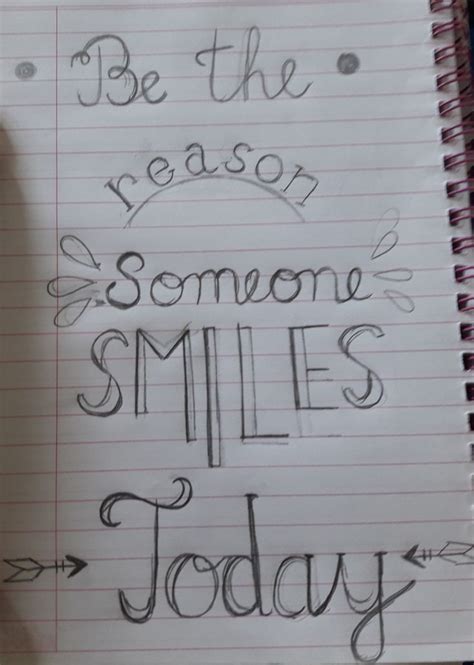 Be the
reason
Someone
SMILES
Today